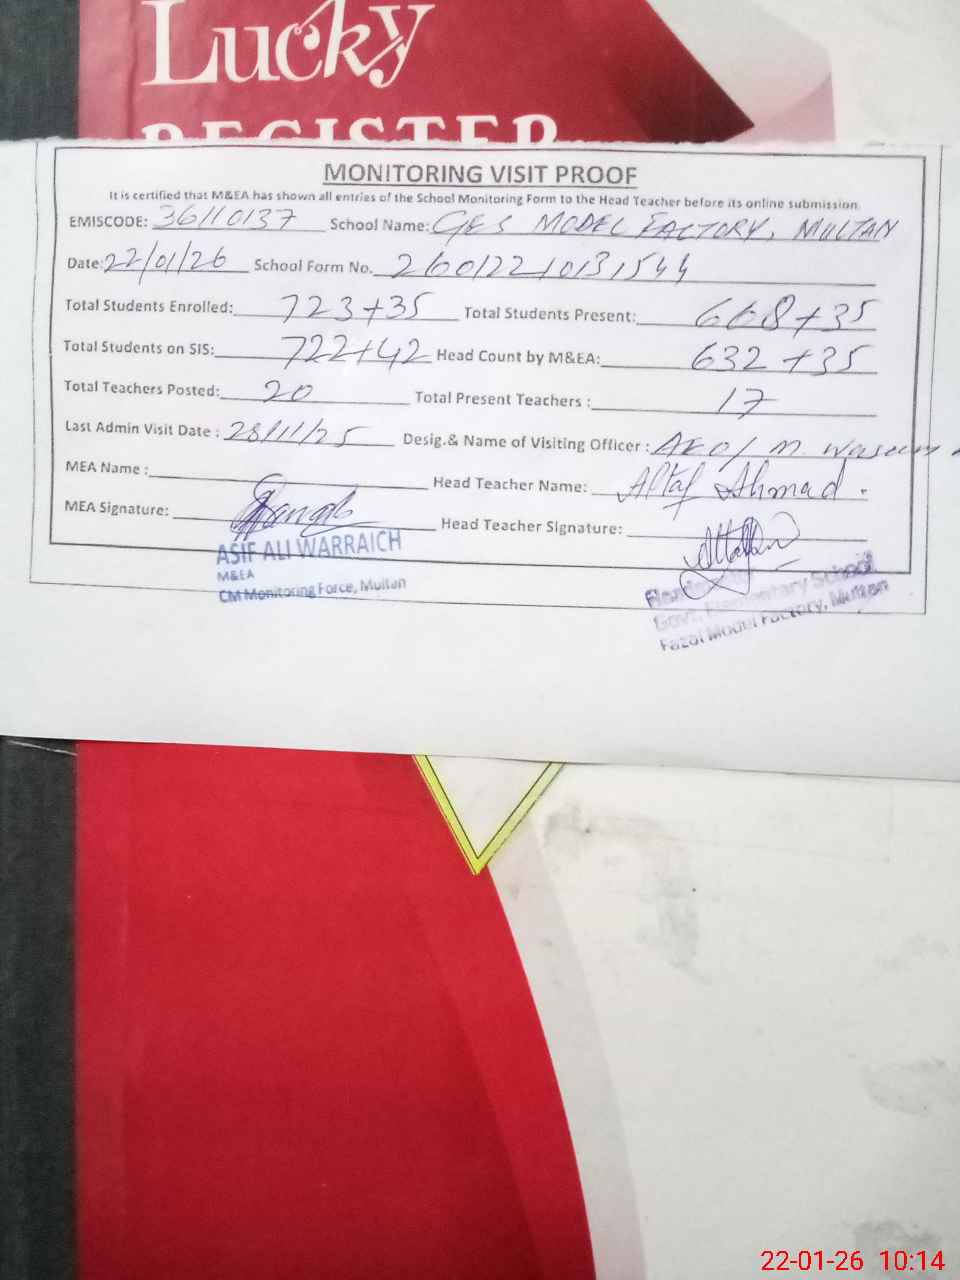 Lucky
REGISTER
MONITORING VISIT PROOF
It is certified that M&EA has shown all entries of the School Monitoring Form to the Head Teacher before its online submission.
EMISCODE: 36110137 School Name: GES MODEL FACTORY, MULTAN
Date: 22/01/26 School Form No. 260012210131544
Total Students Enrolled: 723+35 Total Students Present: 668+35
Total Students on SIS: 722+42 Head Count by M&EA: 632+35
Total Teachers Posted: 20 Total Present Teachers : 17
Last Admin Visit Date : 28/11/25 Desig.& Name of Visiting Officer : AEO/ M. Waseem
MEA Name : Head Teacher Name: Altaf Ahmad.
MEA Signature: Head Teacher Signature:
ASIF ALI WARRAICH
M&EA
CM Monitoring Force, Multan
Govt. Elementary School
Fazal Model Factory, Multan
22-01-26 10:14